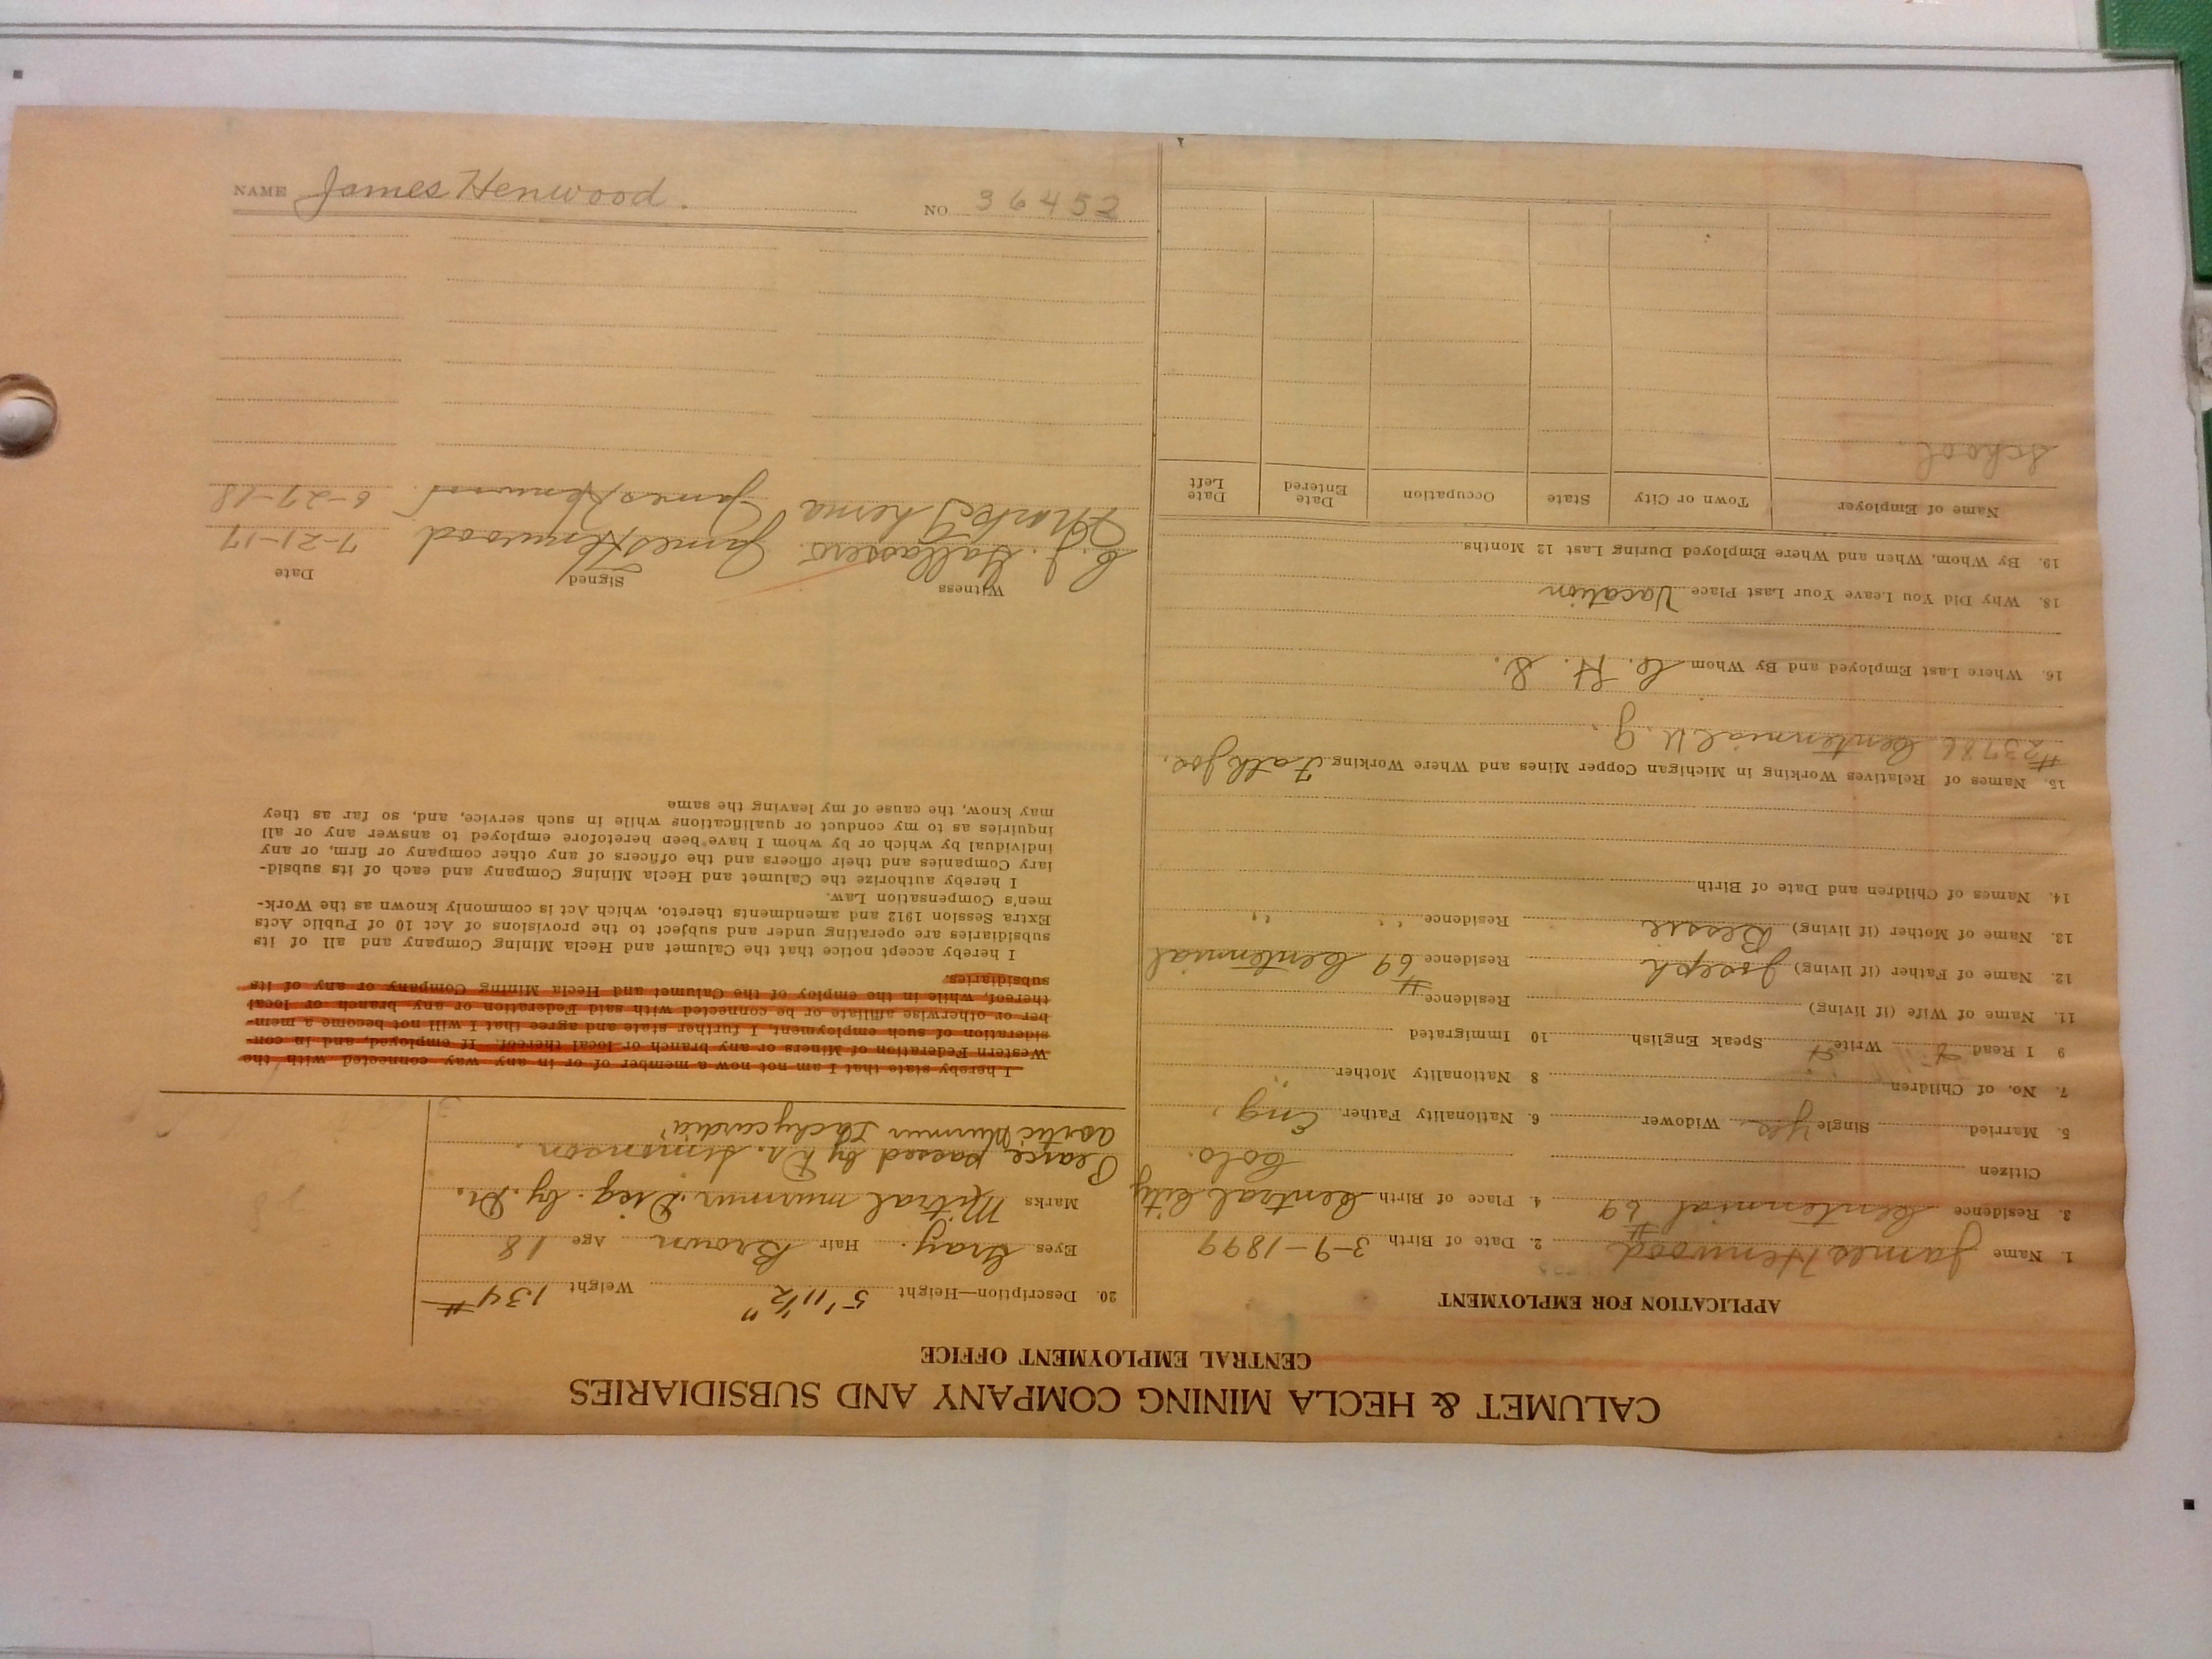 CALUMET & HECLA MINING COMPANY AND SUBSIDIARIES
CENTRAL EMPLOYMENT OFFICE
APPLICATION FOR EMPLOYMENT
1. Name James Henwood 2. Date of Birth 3-9-1899
3. Residence Centennial #69 4. Place of Birth Central City
Citizen Colo.
5. Married Single Yes Widower 6. Nationality Father Eng.
7. No. of Children 8 Nationality Mother "
9 I Read Write Speak English 10 Immigrated
11. Name of Wife (if living) Residence
12. Name of Father (if living) Joseph Residence #69 Centennial
13. Name of Mother (if living) Bessie Residence " "
14. Names of Children and Date of Birth
15. Names of Relatives Working in Michigan Copper Mines and Where Working Fath Jos.
#23786 Centennial U. g.
16. Where Last Employed and By Whom C. H. S.
18. Why Did You Leave Your Last Place Vacation
19. By Whom, When and Where Employed During Last 12 Months
Name of Employer Town or City State Occupation Date Entered Date Left
School.
20. Description—Height 5' 11 1/2" Weight 134#
Eyes Gray. Hair Brown Age 18
Marks Mitral murmur. Disg. by. Dr.
Pearce, passed by Dr. Simonson.
Aortic Murmur Tachycardia
I hereby state that I am not now a member of or in any way connected with the
Western Federation of Miners or any branch or local thereof. If employed, and in con-
sideration of such employment, I further state and agree that I will not become a mem-
ber or otherwise affiliate or be connected with said Federation or any branch or local
thereof, while in the employ of the Calumet and Hecla Mining Company or any of its
subsidiaries.
I hereby accept notice that the Calumet and Hecla Mining Company and all of its
subsidiaries are operating under and subject to the provisions of Act 10 of Public Acts
Extra Session 1912 and amendments thereto, which Act is commonly known as the Work-
men's Compensation Law.
I hereby authorize the Calumet and Hecla Mining Company and each of its subsid-
iary Companies and their officers and the officers of any other company or firm, or any
individual by which or by whom I have been heretofore employed to answer any or all
inquiries as to my conduct or qualifications while in such service, and, so far as they
may know, the cause of my leaving the same
Witness Signed Date
James Henwood 7-21-17
James Henwood 6-27-18
NAME James Henwood. NO 36452